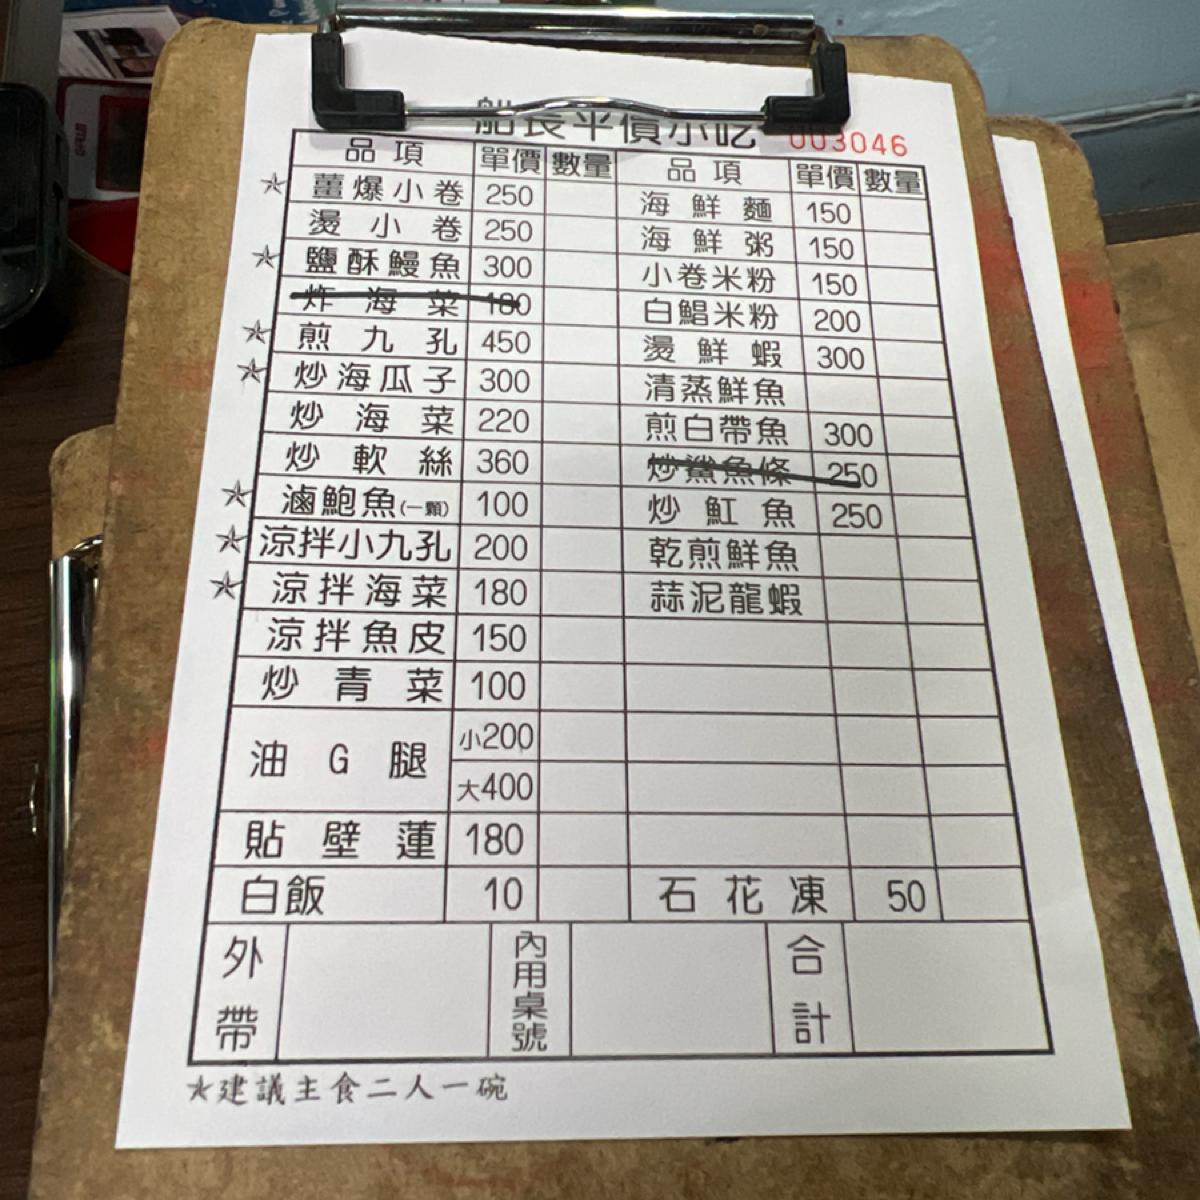 船長平價小吃 003046
品項 單價 數量 品項 單價 數量
☆ 薑爆小卷 250 海鮮麵 150
燙小卷 250 海鮮粥 150
☆ 鹽酥鰻魚 300 小卷米粉 150
炸海菜 180 白鯧米粉 200
☆ 煎九孔 450 燙鮮蝦 300
☆ 炒海瓜子 300 清蒸鮮魚
炒海菜 220 煎白帶魚 300
炒軟絲 360 炒鯊魚條 250
☆ 滷鮑魚(一顆) 100 炒魟魚 250
☆ 涼拌小九孔 200 乾煎鮮魚
☆ 涼拌海菜 180 蒜泥龍蝦
涼拌魚皮 150
炒青菜 100
油G腿 小200
大400
貼壁蓮 180
白飯 10 石花凍 50
外帶 內用桌號 合計
★建議主食二人一碗